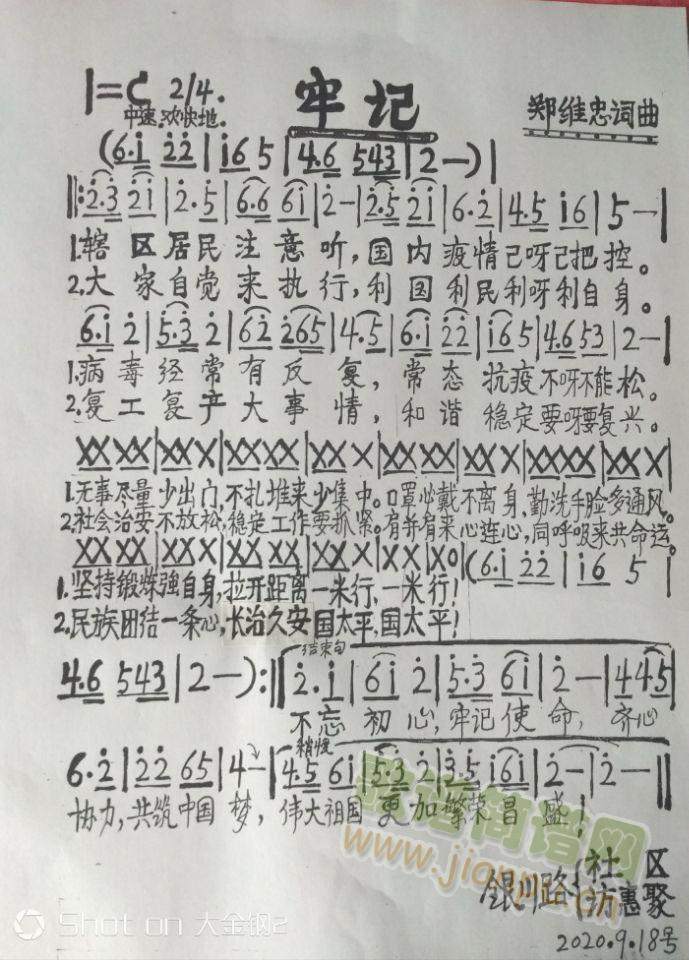 1=C 2/4.
牢记
中速.欢快地.
郑维忠词曲
(6·i 22|i65|4·6 543|2—)|
‖:2·3 2i|2·5|6·6 6i|2—|2·5 2i|6·2|4·5 i6|5—|
1.辖区居民注意听,国内疫情己呀己把控。
2.大家自觉来执行,利国利民利呀利自身。
6·i 2|5·3 2|62 265|4·5|6·i 22|i65|4·6 53|2—|
1.病毒经常有反复,常态抗疫不呀不能松。
2.复工复产大事情,和谐稳定要呀要复兴。
XX XX|XX X|XX XX|XX X|XX XX|XX X|XX XX|XX X|
1.无事尽量少出门,不扎堆来少集中。口罩必戴不离身,勤洗手脸多通风。
2.社会治安不放松,稳定工作要抓紧。肩并肩来心连心,同呼吸来共命运。
XX XX|XX X|XX XX|XX X|XX X0|(6·i 22|i6 5|
1.坚持鍛炼強自身,拉开距离一米行,一米行!
2.民族团结一条心,长治久安国太平,国太平!
结束句
4·6 543|2—):‖2·i|6i 2|5·3 6i|2—|445|
不忘初心,牢记使命,齐心
稍慢
6·2|22 65|4—|4·5 6i|5·3 2|3·5 i6i|2—|2—‖
协力,共筑中国梦,伟大祖国更加繁荣昌盛!
银川路{社区
访惠聚
2020.9.18号
Shot on 大金钢2